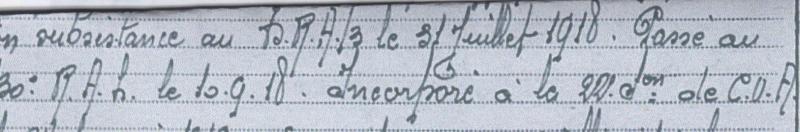 n subsistance au D.R.A./3 le 31 Juillet 1918. Passé au
30e R.A.L. le 10.9.18. Incorporé à la 22e don de C.O.A.